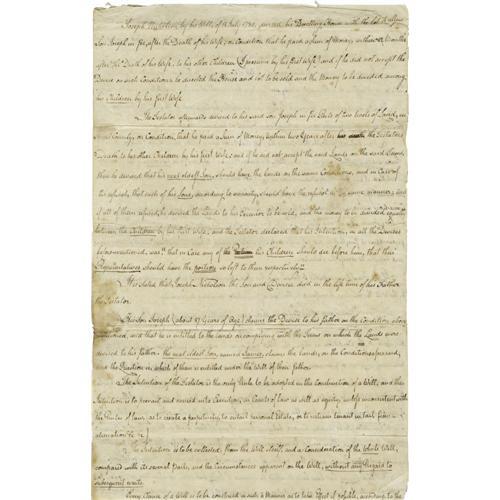 Joseph by his Will, of 12 July 1790, his Dwelling House with the Lot to
Son Joseph in fee, after the Death of his Wife; on Condition that he paid a Sum of Money, within 12 Months
after the Death of his Wife, to his other Children by his first Wife; and, if he did not accept the
Devise on such Condition, he directed the House and Lot to be sold and the Money to be divided among
his Children by his first Wife
The Testator afterwards devised to his said son Joseph in fee Parts of two tracts of Land, in
County, on Condition, that he paid a Sum of Money, within two Years after the Testator's
Decease to his other Children by his first Wife; and if he did not accept the said Lands on the said Terms,
then he devised that his next oldest Son, should have the Lands on the same Conditions, and in Case of
his refusal, that each of his Sons, according to seniority, should have the refusal in the same manner; and
if all of them refused, he devised the Lands to his Executor to be sold, and the money to be divided equally
between the Children by his first Wife; and the Testator declared that his Intention, in all the Devises
beforementioned, was, that in Case any of his Children should die before him, that their
Representatives should have the portions so left to them respectively
It is stated that Joseph the Son and Devisee died in the life time of his Father
the Testator.
His Son Joseph (about 17 Years of Age) claims the Devise to his father on the Condition
and that he is entitled to the Lands on complying with the Terms on which the Lands were
devised to his father. The next oldest Son, named James, claims the Lands, on the Conditions
and the Question is which of them is entitled under the Will of their father.
The Intention of the Testator is the only Rule to be adopted in the Construction of a Will, and this
Intention is to according to in Courts of Law as well as equity, unless inconsistent with
the Rules of Law, as to create a perpetuity, to entail personal Estate, or to restrain tenant in tail from
alienation &c &c
The Intention is to be collected from the Will itself, and a consideration of the whole Will,
compared with its several parts, and the circumstances apparent on the Will, without any Regard to
subsequent events
Every Clause of a Will is to be construed in such a Manner as to take Effect if possible, according to the